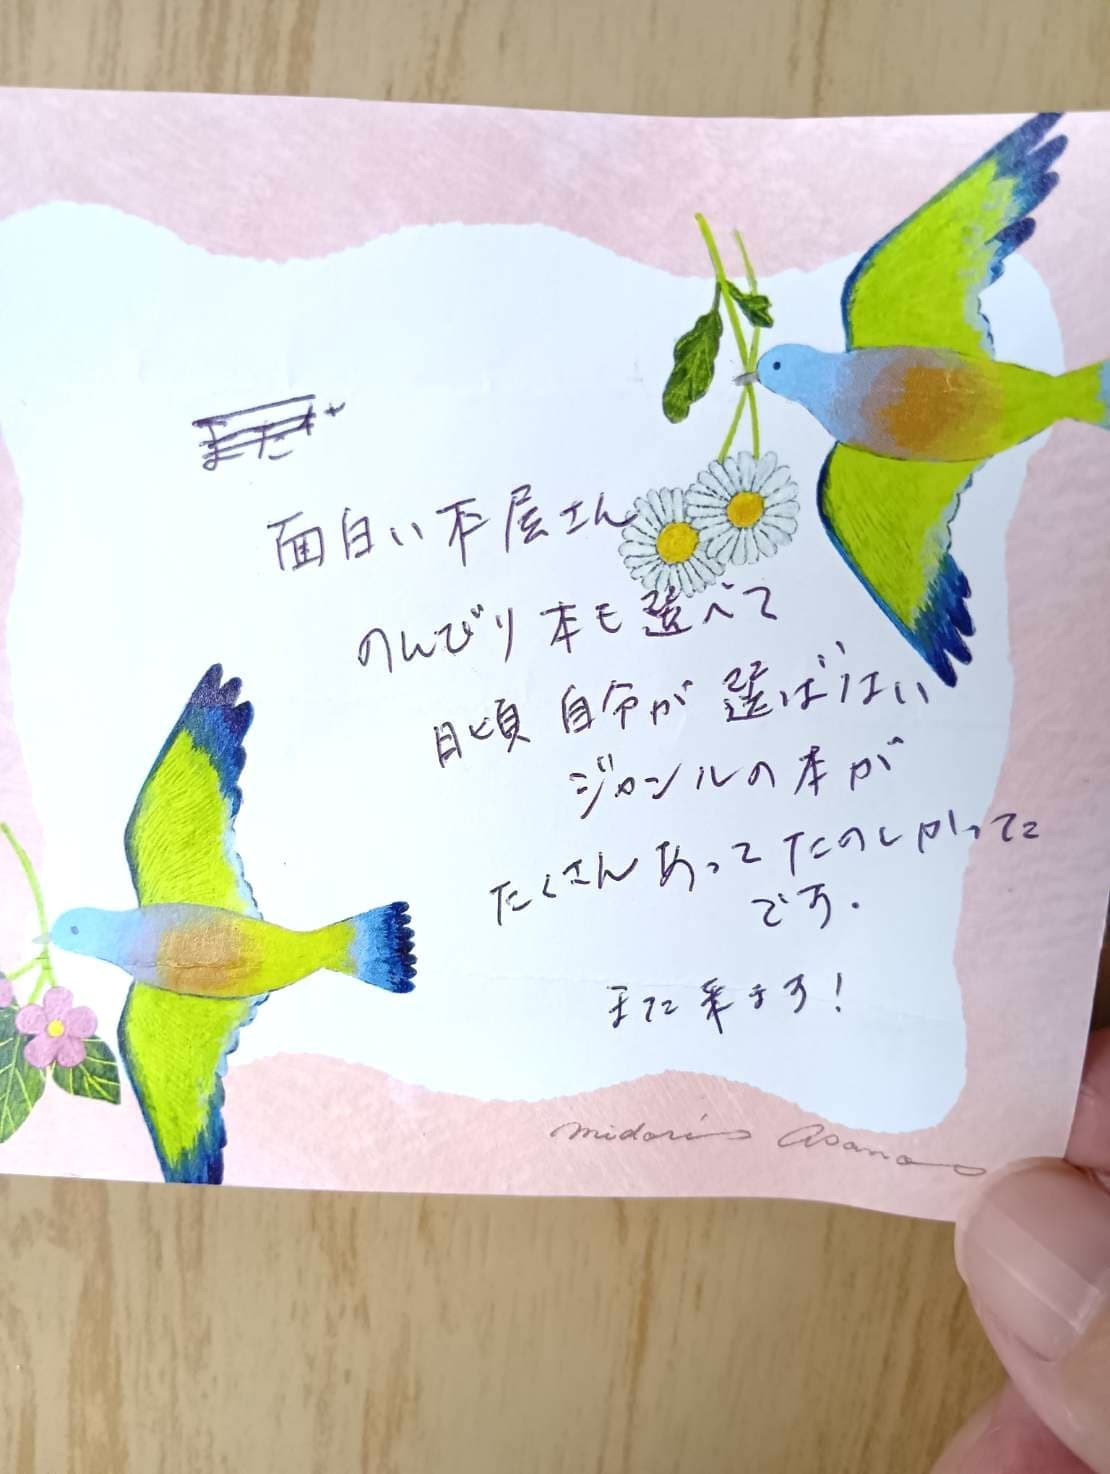 面白い本屋さん
のんびり本も選べて
日頃自分が選ばない
ジャンルの本が
たくさんあってたのしかった
です.
また来ます!
midori asano